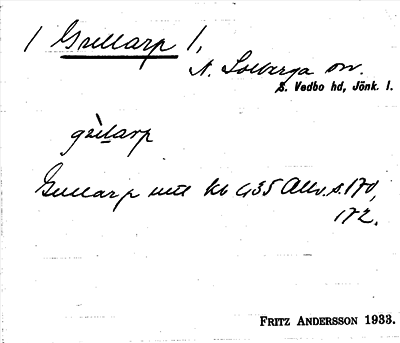 / Gullarp /,
N. Solberga sn.
S. Vedbo hd, Jönk. l.
gùlarp
Gullarp mtl kb 435 Allv. s. 170,
172.
FRITZ ANDERSSON 1933.